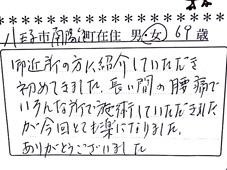 八王子市南陽台町在住 男・女 69歳
御近所の方に紹介していただき
初めてきました。長い間の腰痛で
いろんな所で施術していただきました
が今回とても楽になりました。
ありがとうございました